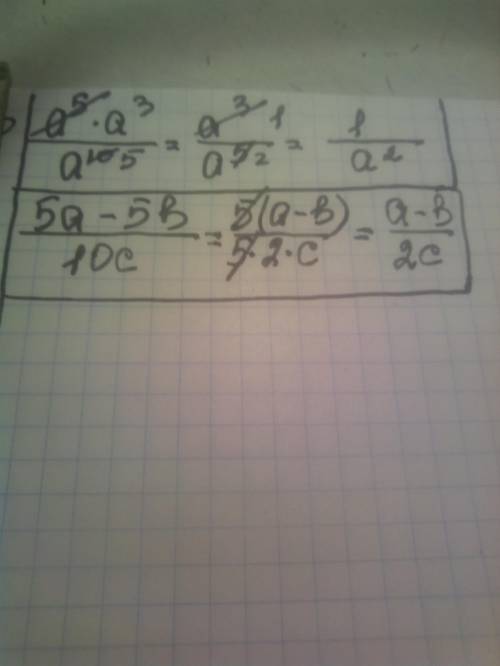 a⁵·a³ / a¹⁰ ⁵ = a³ ¹ / a⁵ ² = 1 / a²
5a - 5b / 10c = 5(a-b) / 5·2·c = a-b / 2c